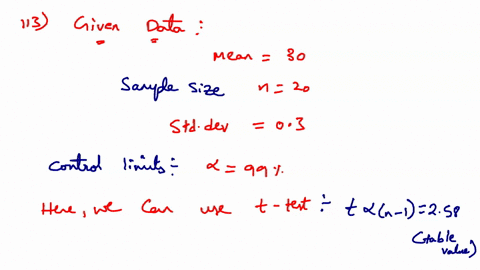 113) Given Data :-
Mean = 30
Sample Size n = 20
Std.dev = 0.3
Control limits :- α = 99%
Here, we Can use t-test :- t α(n-1) = 2.58
(table value)